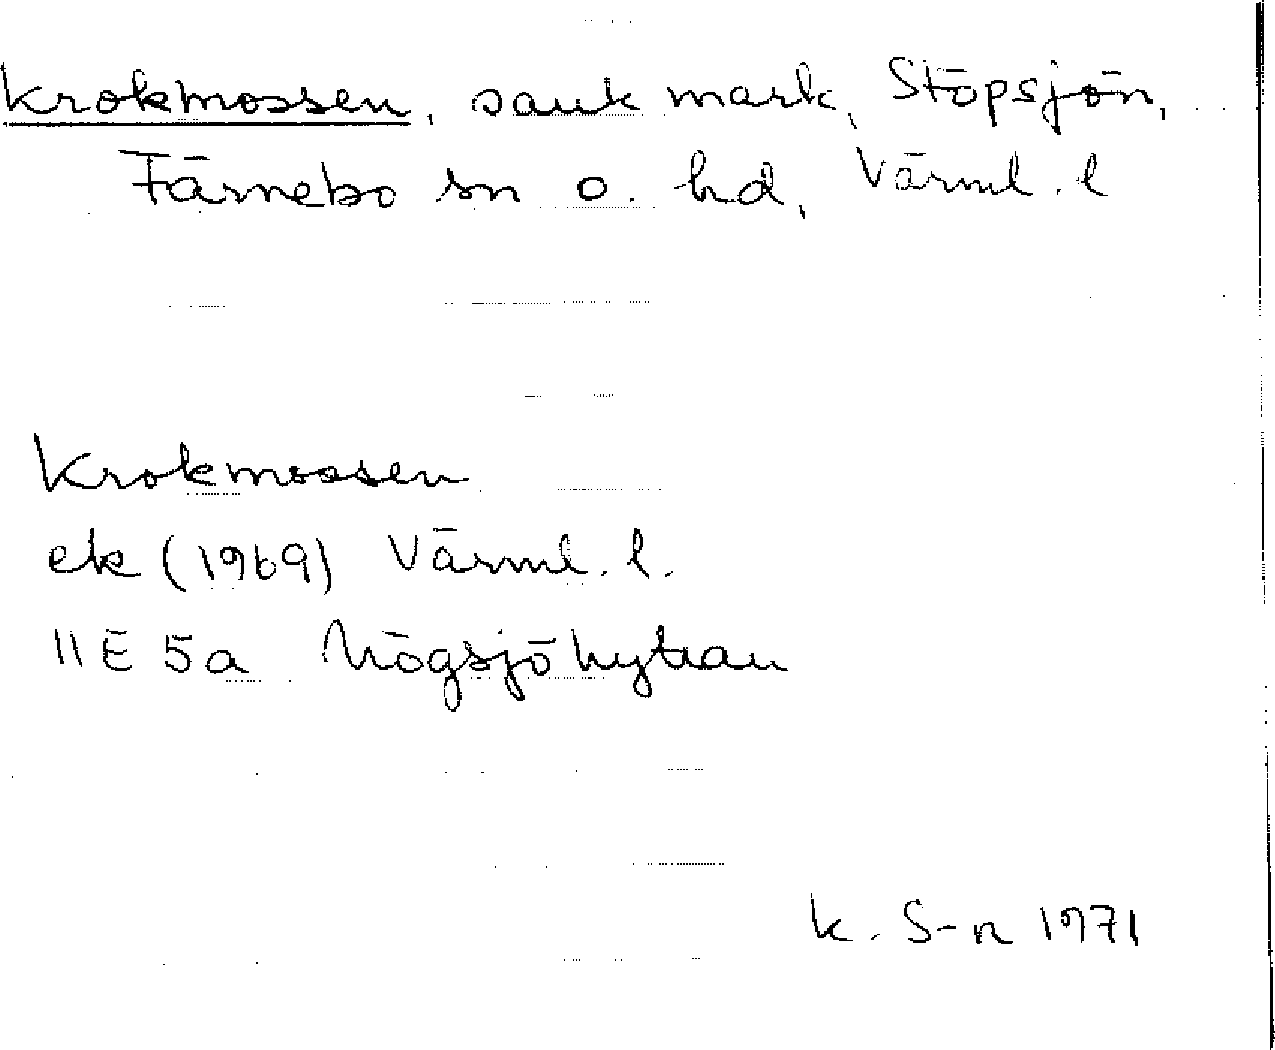 Krokmossen, sank mark, Stöpsjön,
Färnebo sn o. hd, Värml. l
Krokmossen
ek (1969) Värml. l.
11E 5a Högsjöhyttan
K. S-n 1971